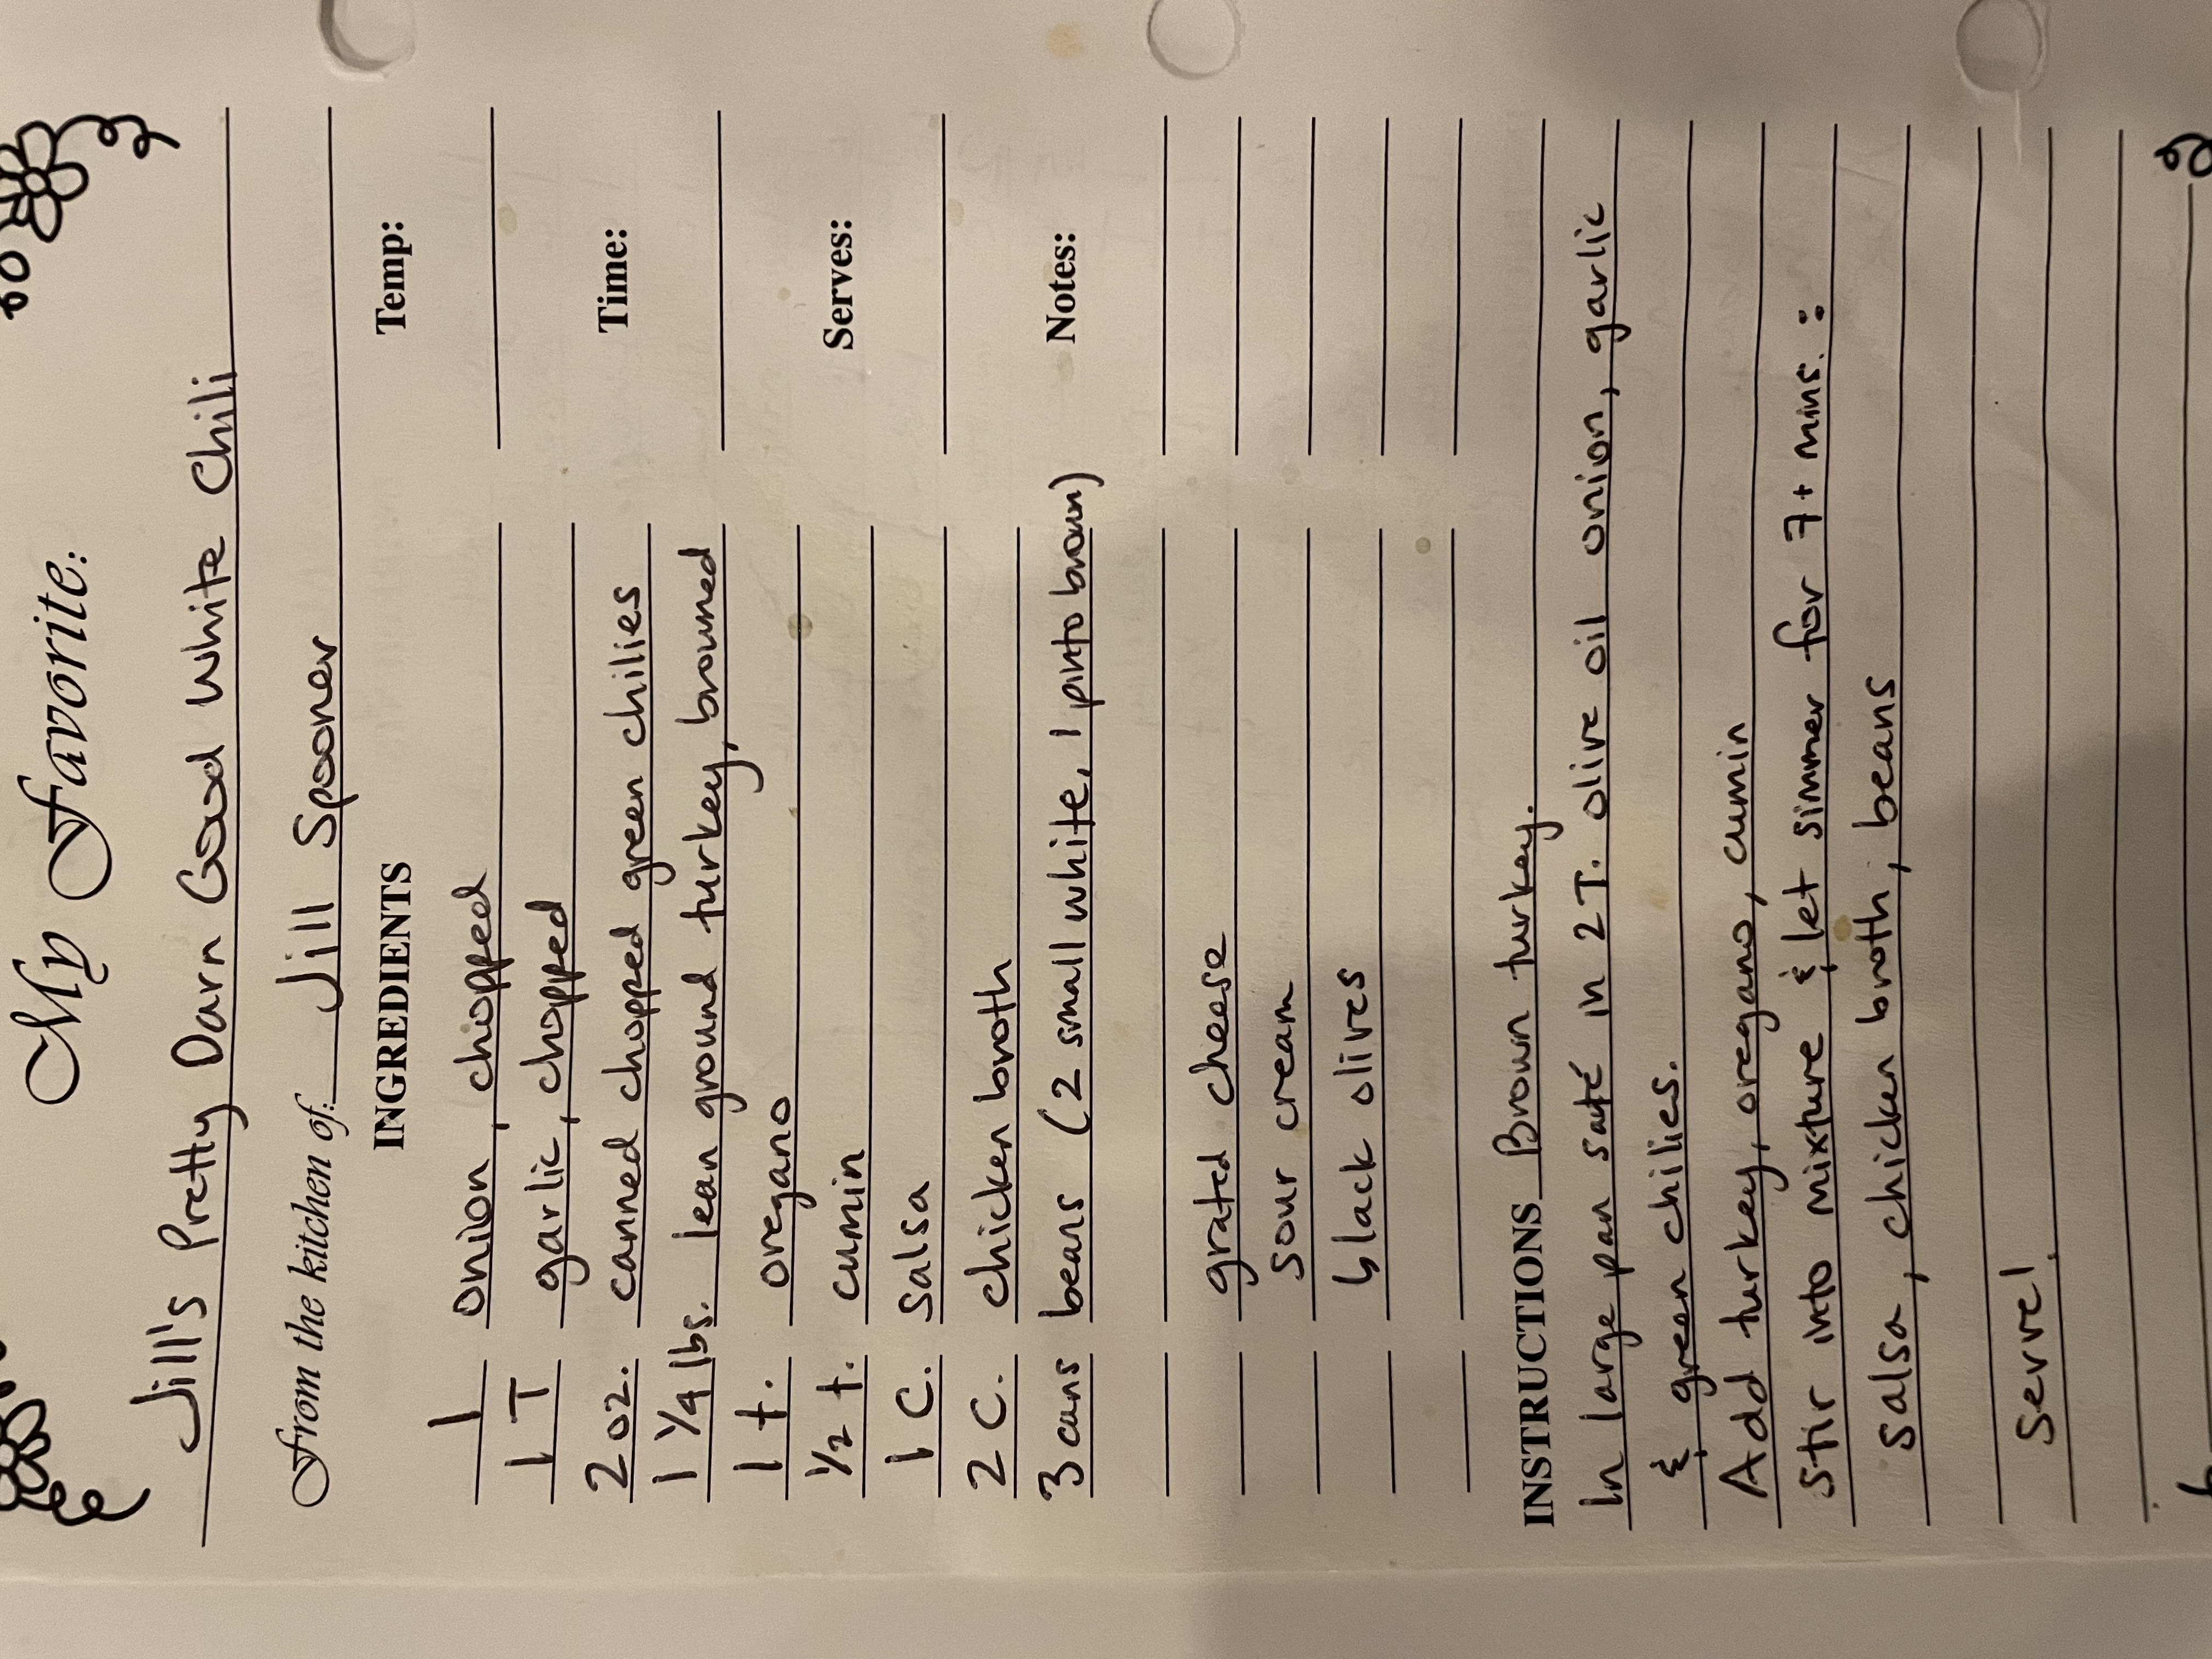 My Favorite:
Jill's Pretty Darn Good White Chili
From the kitchen of: Jill Spooner
INGREDIENTS Temp:
1 onion, chopped
1 T garlic, chopped
2 oz. canned chopped green chilies
Time:
1 1/4 lbs. lean ground turkey, browned
1 t. oregano
1/2 t. cumin
Serves:
1 C. salsa
2 C. chicken broth
3 cans beans (2 small white, 1 pinto brown)
Notes:
grated cheese
sour cream
black olives
INSTRUCTIONS Brown turkey.
In large pan sauté in 2 T. olive oil onion, garlic
& green chilies.
Add turkey, oregano, cumin
Stir into mixture & let simmer for 7+ mins. :
salsa, chicken broth, beans
Serve!